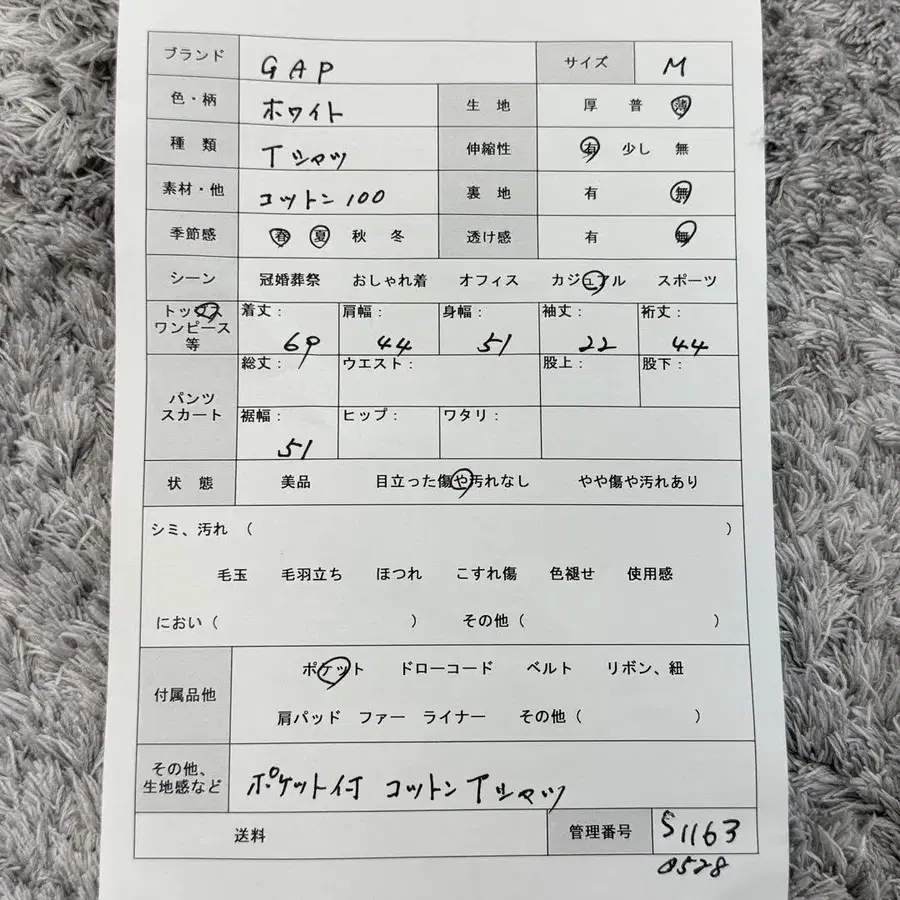 ブランド GAP サイズ M
色・柄 ホワイト 生地 厚 普 薄
種類 Tシャツ 伸縮性 有 少し 無
素材・他 コットン100 裏地 有 無
季節感 春 夏 秋 冬 透け感 有 無
シーン 冠婚葬祭 おしゃれ着 オフィス カジュアル スポーツ
トップス
ワンピース
等
着丈: 69 肩幅: 44 身幅: 51 袖丈: 22 裄丈: 44
パンツ
スカート
総丈: ウエスト: 股上: 股下:
裾幅: 51 ヒップ: ワタリ:
状態 美品 目立った傷や汚れなし やや傷や汚れあり
シミ、汚れ ( )
毛玉 毛羽立ち ほつれ こすれ傷 色褪せ 使用感
におい ( ) その他 ( )
付属品他 ポケット ドローコード ベルト リボン、紐
肩パッド ファー ライナー その他 ( )
その他、
生地感など
ポケット付 コットンTシャツ
送料 管理番号 S1163
0528